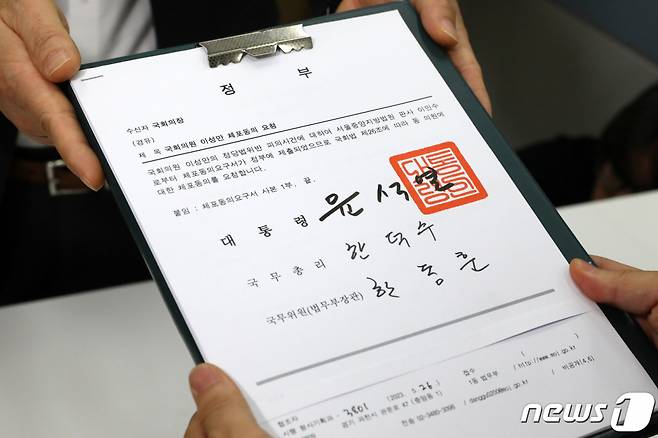 정 부
수신자 국회의장
(경유)
제 목 국회의원 이성만 체포동의 요청
국회의원 이성만의 정당법위반 피의사건에 대하여 서울중앙지방법원 판사 이민수
로부터 체포동의요구서가 정부에 제출되었으므로 국회법 제26조에 따라 동 의원에
대한 체포동의를 요청합니다.
붙임 : 체포동의요구서 사본 1부. 끝.
대 통 령 윤석열
국 무 총 리 한덕수
국무위원(법무부장관) 한동훈
협조자
시행 형사기획과- 3801 (2023. 5. 26) 접수 ( )
경기 과천시 관문로 47 (중앙동 1) 1동 법무부 / http://www.moj.go.kr
전화 02-3480-3096 / @moj.go.kr / 비공개(4,6)
news1